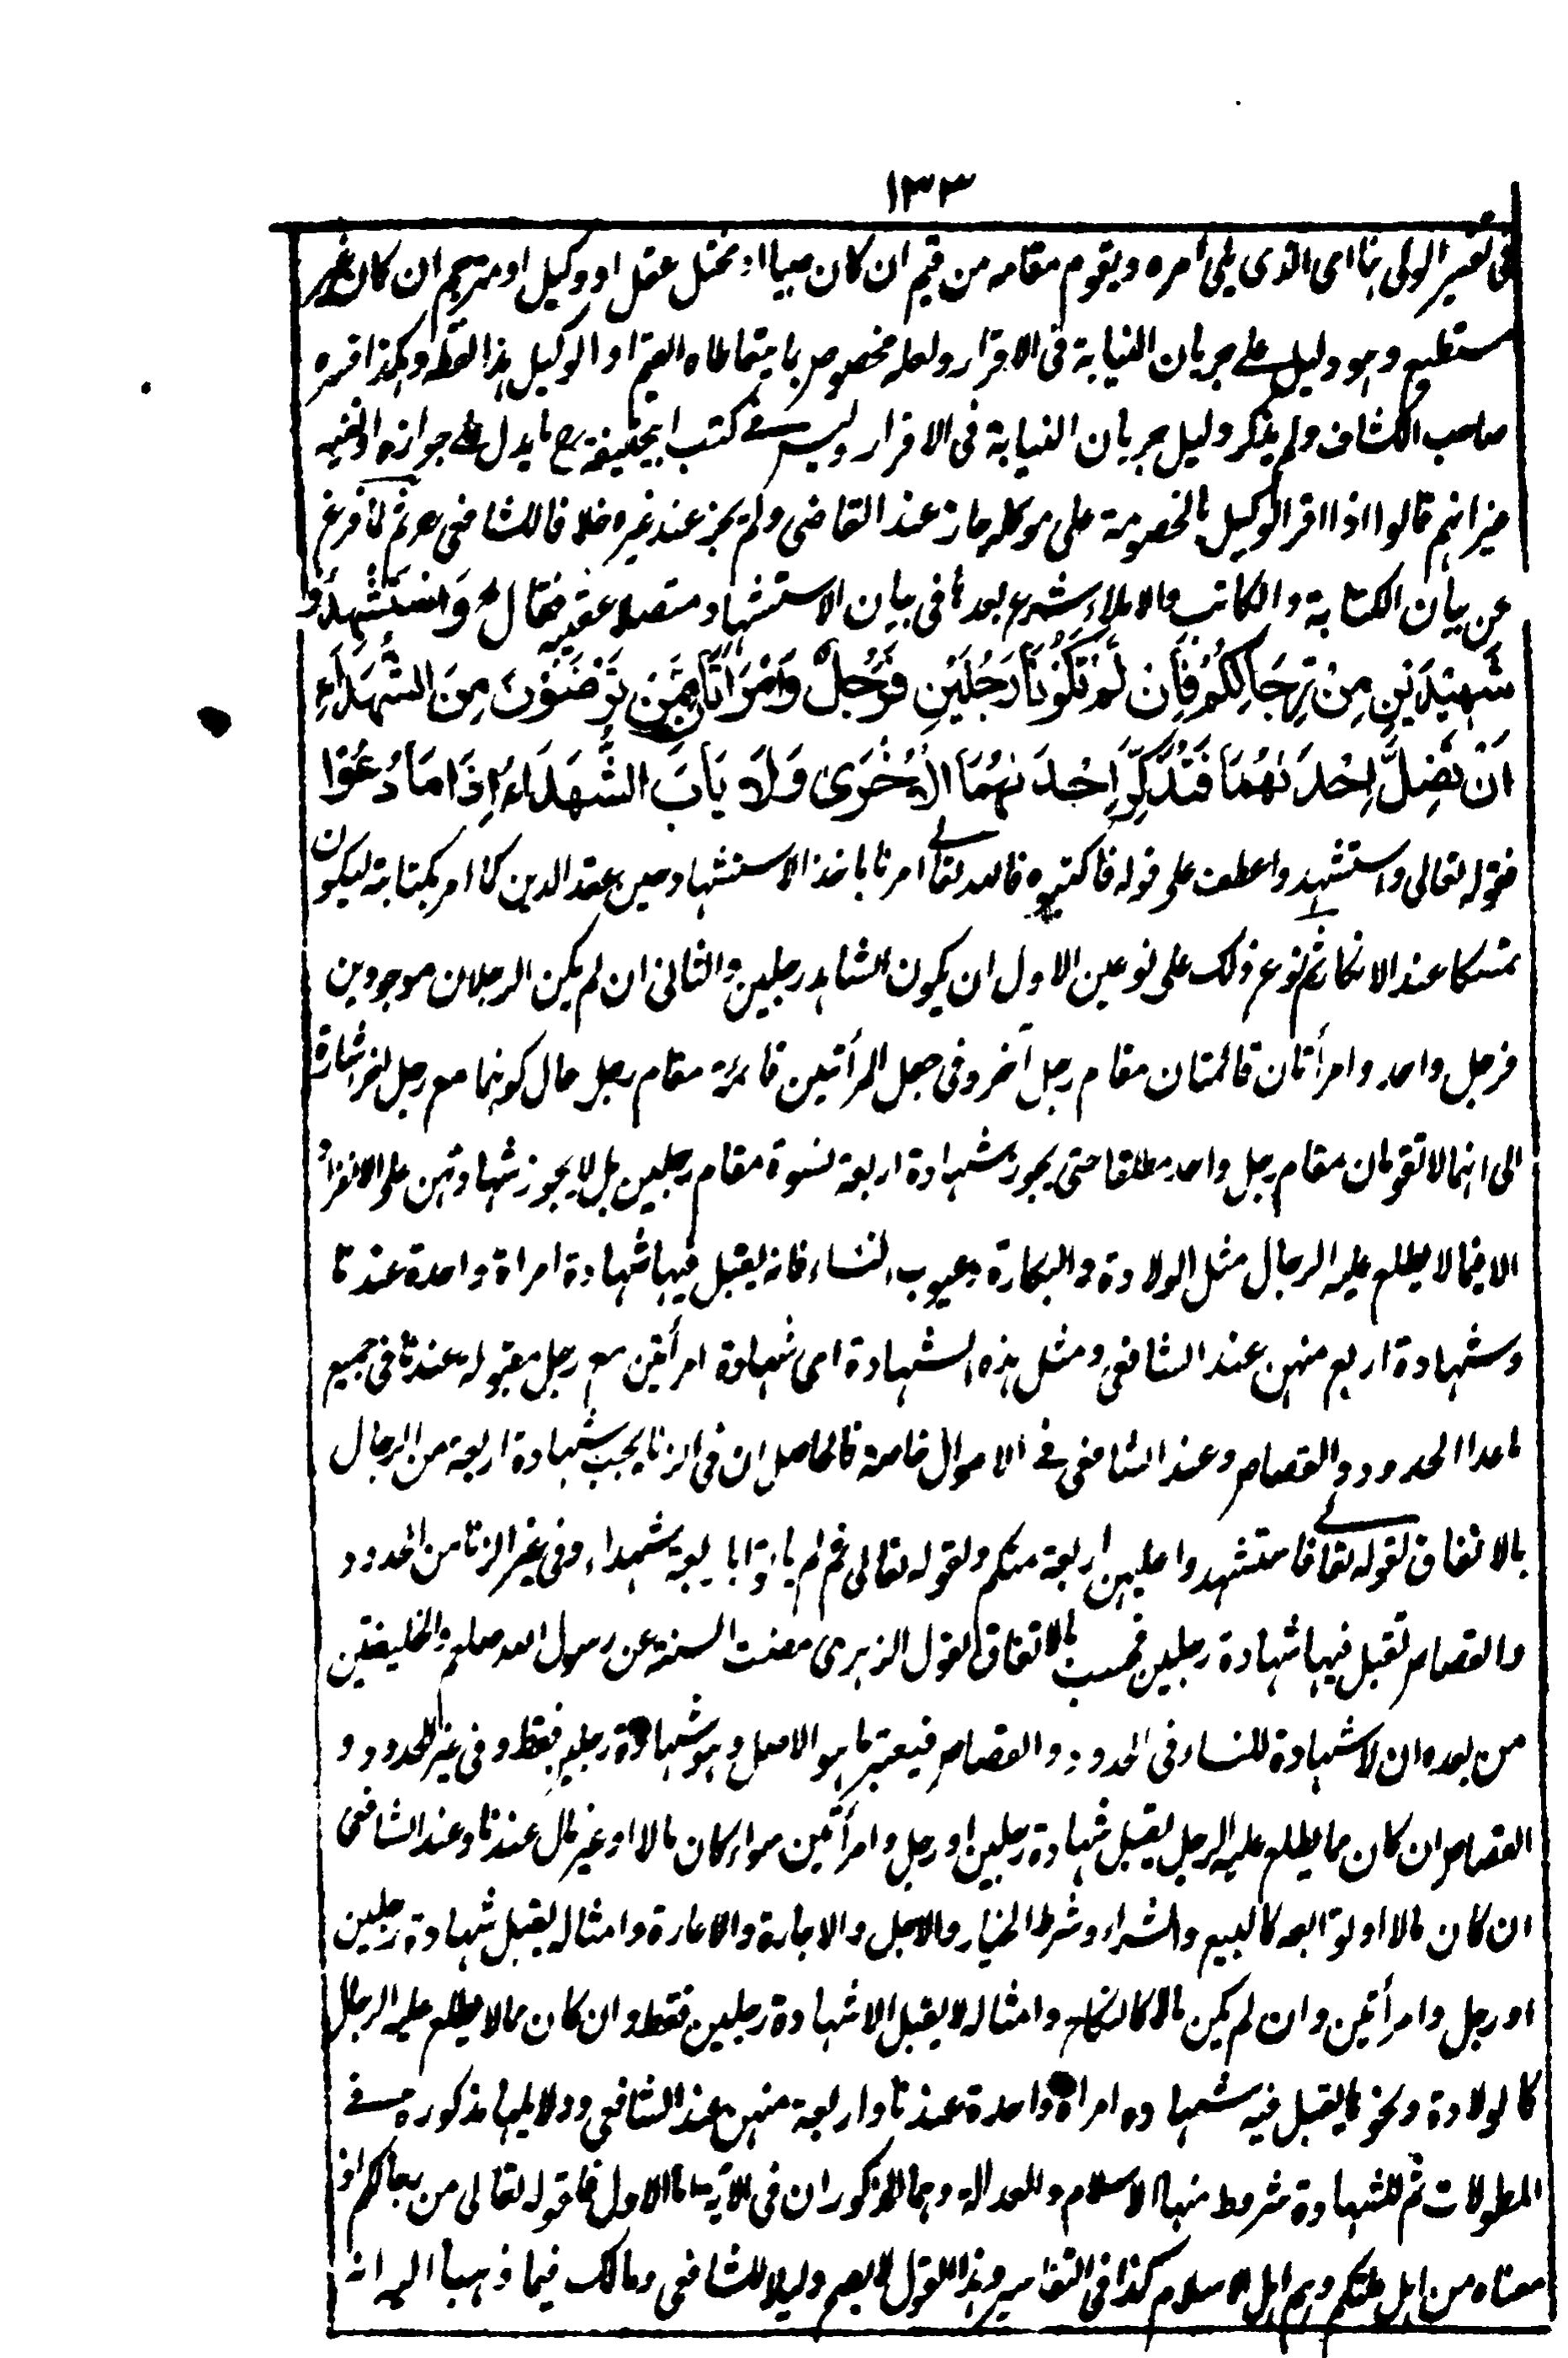 ١٣٣
فى تفسير الولى بنا اى الذى يلى أمره ويقوم مقامه من قيم ان كان صبيا او مختل عقل او وكيل او مترجم ان كان غير
مستطيع وهو دليل على جريان النيابة فى الاقرار ولعله مخصوص بما يتعاطاه القيم او الوكيل هذا لفظه وهكذا فسره
صاحب الكشاف ولم يذكر دليل جريان النيابة فى الاقرار وليس فى كتب ابيحنيفة رح ما يدل على جوازه او نفيه
غير انهم قالوا اذا اقر الوكيل بالخصومة على موكله جاز عند القاضى ولم يجز عند غيره خلافا للشافعى رح ثم لما فرغ
عن بيان الكتابة والكاتب والاملاء شرع بعدها فى بيان الاستشهاد متصلا عقيبه فقال وَاسْتَشْهِدُوْا
شَهِيْدَيْنِ مِنْ رِّجَالِكُمْ فَاِنْ لَّمْ يَكُوْنَا رَجُلَيْنِ فَرَجُلٌ وَّامْرَاَتَانِ مِمَّنْ تَرْضَوْنَ مِنَ الشُّهَدَآءِ
اَنْ تَضِلَّ اِحْدٰىهُمَا فَتُذَكِّرَ اِحْدٰىهُمَا الْاُخْرٰى وَلَا يَاْبَ الشُّهَدَآءُ اِذَا مَا دُعُوْا
فقوله تعالى واستشهدوا عطف على قوله فاكتبوه فالله تعالى امرنا باخذ الاستشهاد حين عقد الدين كما امر بكتابة ليكون
متمسكا عند الانكار ثم نوع ذلك على نوعين الاول ان يكون الشاهد رجلين والثانى ان لم يكن الرجلان موجودين
فرجل واحد وامرأتان قائمتان مقام رجل آخر وفى جعل المرأتين قائمة مقام رجل حال كونهما مع رجل اخر اشارة
الى انهما لا تقومان مقام رجل واحد مطلقا حتى يجوز شهادة اربعة نسوة مقام رجلين بل لا يجوز شهادتهن على الانفراد
الا فيما لا يطلع عليه الرجال مثل الولادة والبكارة وعيوب النساء فانه يقبل فيها شهادة امراة واحدة عندنا
وشهادة اربع منهن عند الشافعى ومثل هذه الشهادة اى شهادة امرأتين مع رجل مقبوله عندنا فى جميع
ماعدا الحدود والقصاص وعند الشافعى فى الاموال خاصة فالحاصل ان فى الزنا يجب شهادة اربعة من الرجال
بالاتفاق لقوله تعالى فاستشهدوا عليهن اربعة منكم ولقوله تعالى ثم لم يأتوا باربعة شهداء وفى غير الزنا من الحدود
والقصاص تقبل فيها شهادة رجلين فحسب بالاتفاق لقول الزهرى مضت السنة عن رسول الله صلعم والخليفتين
من بعده ان لا شهادة للنساء فى الحدود والقصاص فيعتبر ما هو الاصل وهو شهادة رجلين فقط وفى غير الحدود و
القصاص ان كان مما يطلع عليه الرجل يقبل شهادة رجلين او رجل وامرأتين سواء كان مالا او غير مال عندنا وعند الشافعى
ان كان مالا او توابعه كالبيع والشراء وشرط الخيار والاجل والاجارة والاعارة وامثاله يقبل شهادة رجلين
او رجل وامرأتين وان لم يكن مالا كالنكاح وامثاله لا يقبل الا شهادة رجلين فقط وان كان مما لا يطلع عليه الرجال
كالولادة ونحوها يقبل فيه شهادة امراة واحدة عندنا واربعة منهن عند الشافعى ودلايلها مذكورة فى
المطولات ثم للشهادة شروط منها الاسلام والعدالة وهما المذكوران فى الآية اما الاول فلقوله تعالى من رجالكم اذ
معناه من اهل ملتكم وهم اهل الاسلام كذا فى التفاسير وهذا القول لا يصح دليلا للشافعى ومالك فيما ذهبا اليه انه